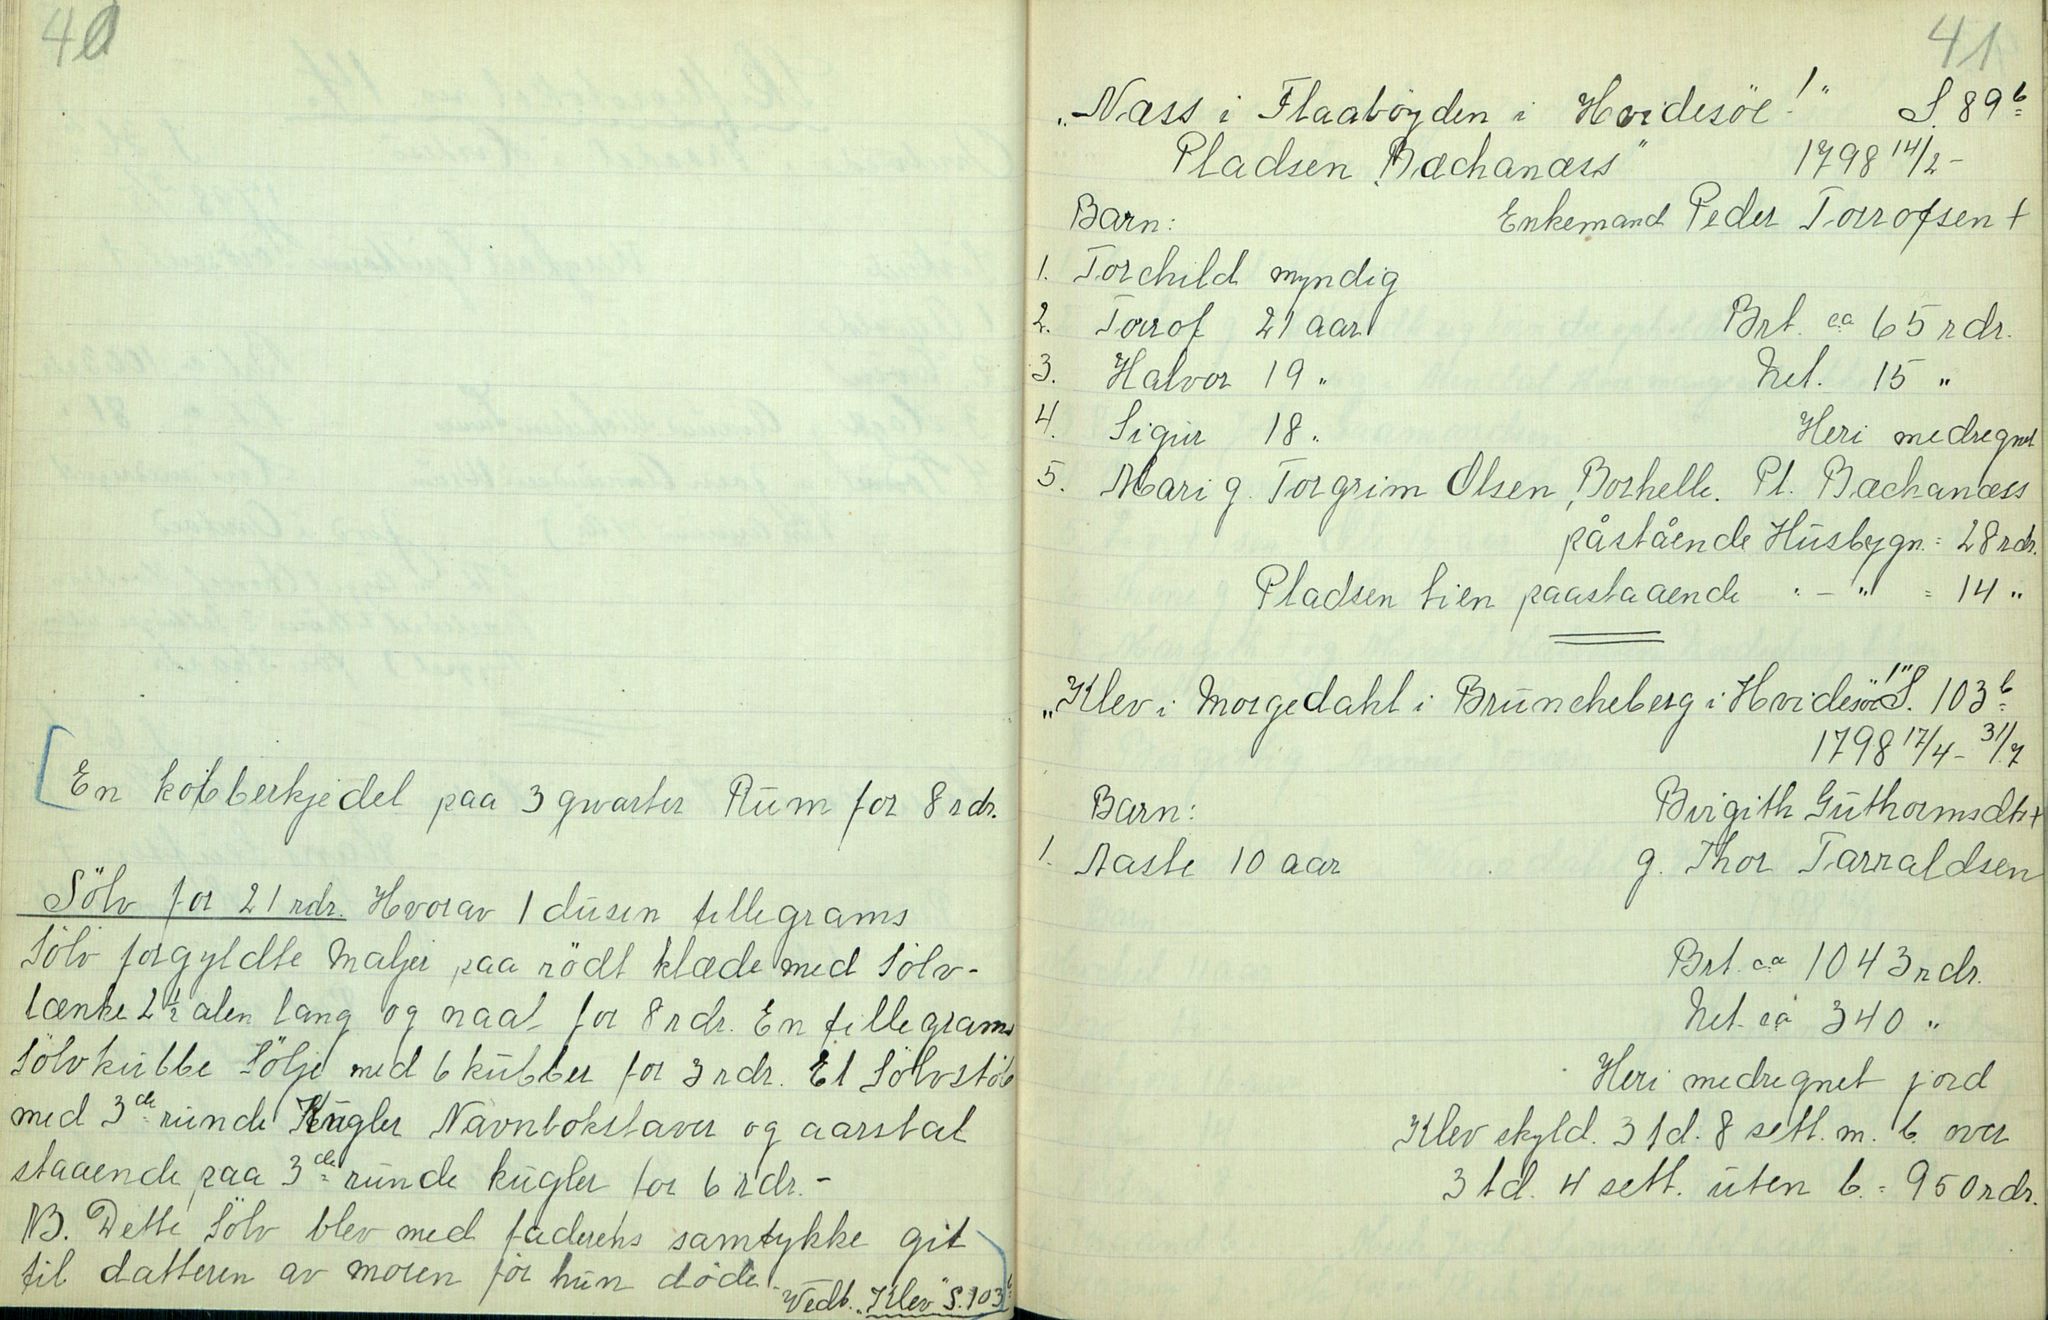 40
En kobberkjedel paa 3 qvarter Rum for 8 rdr.
Sölv for 21 rdr. Hvorav 1 dusin fillegrams
Sölv forgyldte Maljer paa rödt klæde med Sölv-
lænke 2 1/2 alen lang og naal for 8 rdr. En fillegrams
Sölvkubbe Sölje med 6 kubber for 3 rdr. Et Sölvstöb
med 3de runde Kugler Navnbokstaver og aarstal
staaende paa 3de runde kugler for 6 rdr. -
NB. Dette Sölv blev med faderens samtykke git
til datteren av moren för hun döde.
Vedk. "Klev" S. 103b
41
"Næss i Flaabögden i Hvidesöe!" S. 89b
Pladsen "Bæchanæss" 1798 14/2 -
Barn: Enkemand Peder Torrofsen +
1. Torchild myndig
2. Torrof 21 aar Brt. ca 65 rdr.
3. Halvor 19 " Net. 15 "
4. Sigur 18 " Heri medregnet
5. Mari g. Torgrim Olsen Borhelle. Pl. Bæchanæss
påstående Husbygn. = 28 rdr.
Pladsen Lien paastaaende " - " = 14 "
"Klev i Morgedahl i Bruncheberg i Hvidesöe!" S. 103b
1798 17/4 - 31/7
Barn: Birgith Guthormsdtr +
1. Aaste 10 aar g. Thor Tarraldsen
Brt. ca 1043 rdr.
Net. ca 340 "
Heri medregnet jord
Klev skyld. 3 td. 8 sett. m. b. over
3 td. 4 sett. uten b. = 950 rdr.